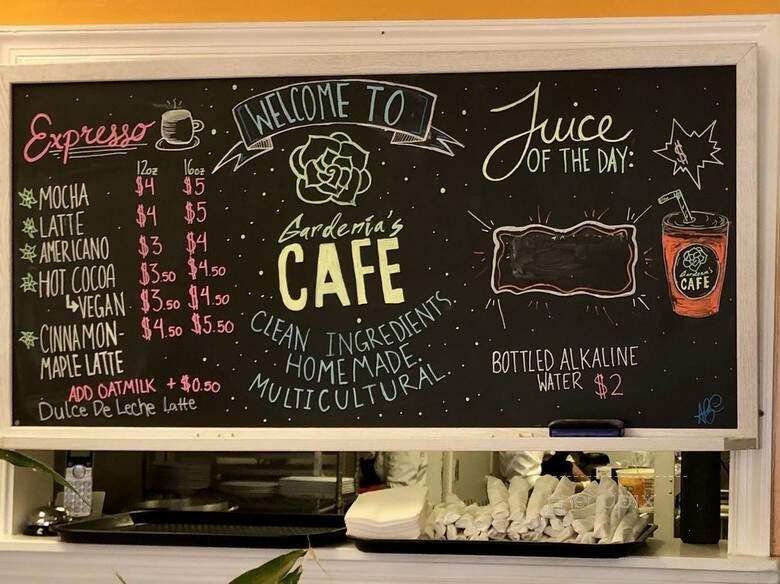 Expresso
12oz 16oz
MOCHA $4 $5
LATTE $4 $5
AMERICANO $3 $4
HOT COCOA $3.50 $4.50
VEGAN $3.50 $4.50
CINNAMON- $4.50 $5.50
MAPLE LATTE
ADD OATMILK + $0.50
Dulce De Leche Latte
WELCOME TO
Gardenia's
CAFE
CLEAN INGREDIENTS.
HOMEMADE.
MULTICULTURAL.
Juice
OF THE DAY:
$
Gardenia's
CAFE
BOTTLED ALKALINE
WATER $2